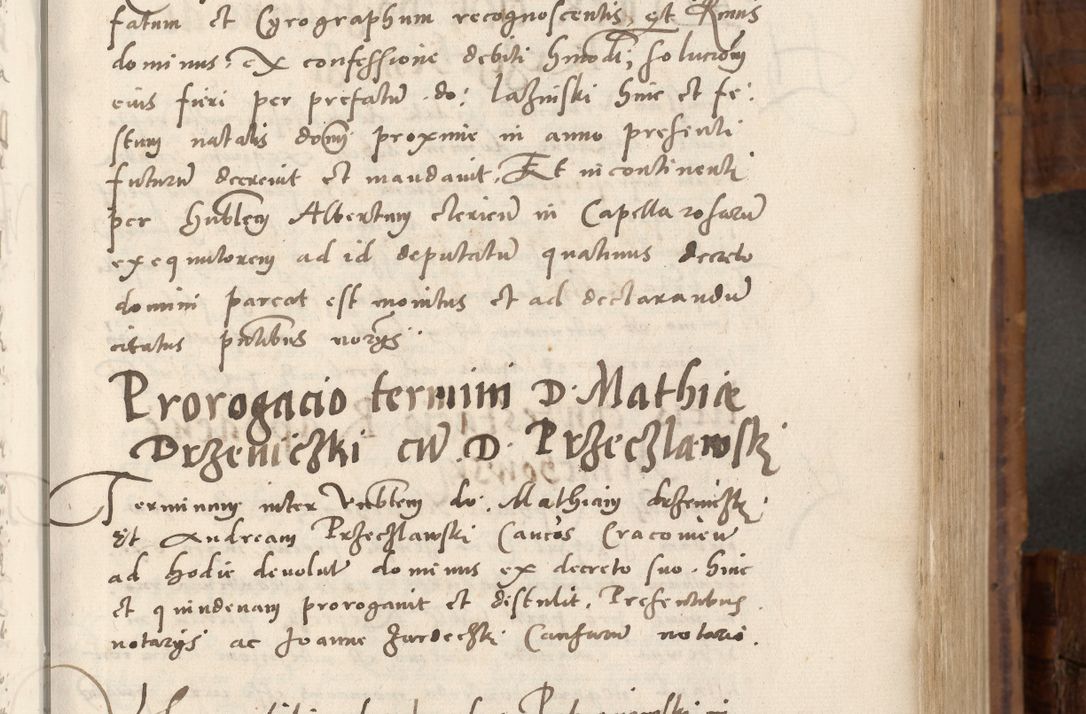 fatum et Cyrographum recognoscentis, et Rmus
dominus, ex confessione debiti hmodi, solucionem
eius fieri per prefatū do: lazinski hinc et fe:
stum natalis domni proxime in anno presenti
futurū decrevit et mandavit, Et in continenti
per Hublem Albertum clericū in Capella rosarū
exequutorem ad id deputatū quatinus decreto
domini pareat est monitus et ad declarandū
citatus pntibus norys
Prorogacio termini D. Mathiæ
Drzeniczki cū D. Przeczlawsky
Terminum inter Vnblem do: Mathiam drzeniczky
Et Andream Przeczlawski Cancos Cracovien̄
ad hodie devolut dominus ex decreto suo hinc
et quindenam prorogavit et distulit, Presentibus
notarys ac Joanne Causarū notario.